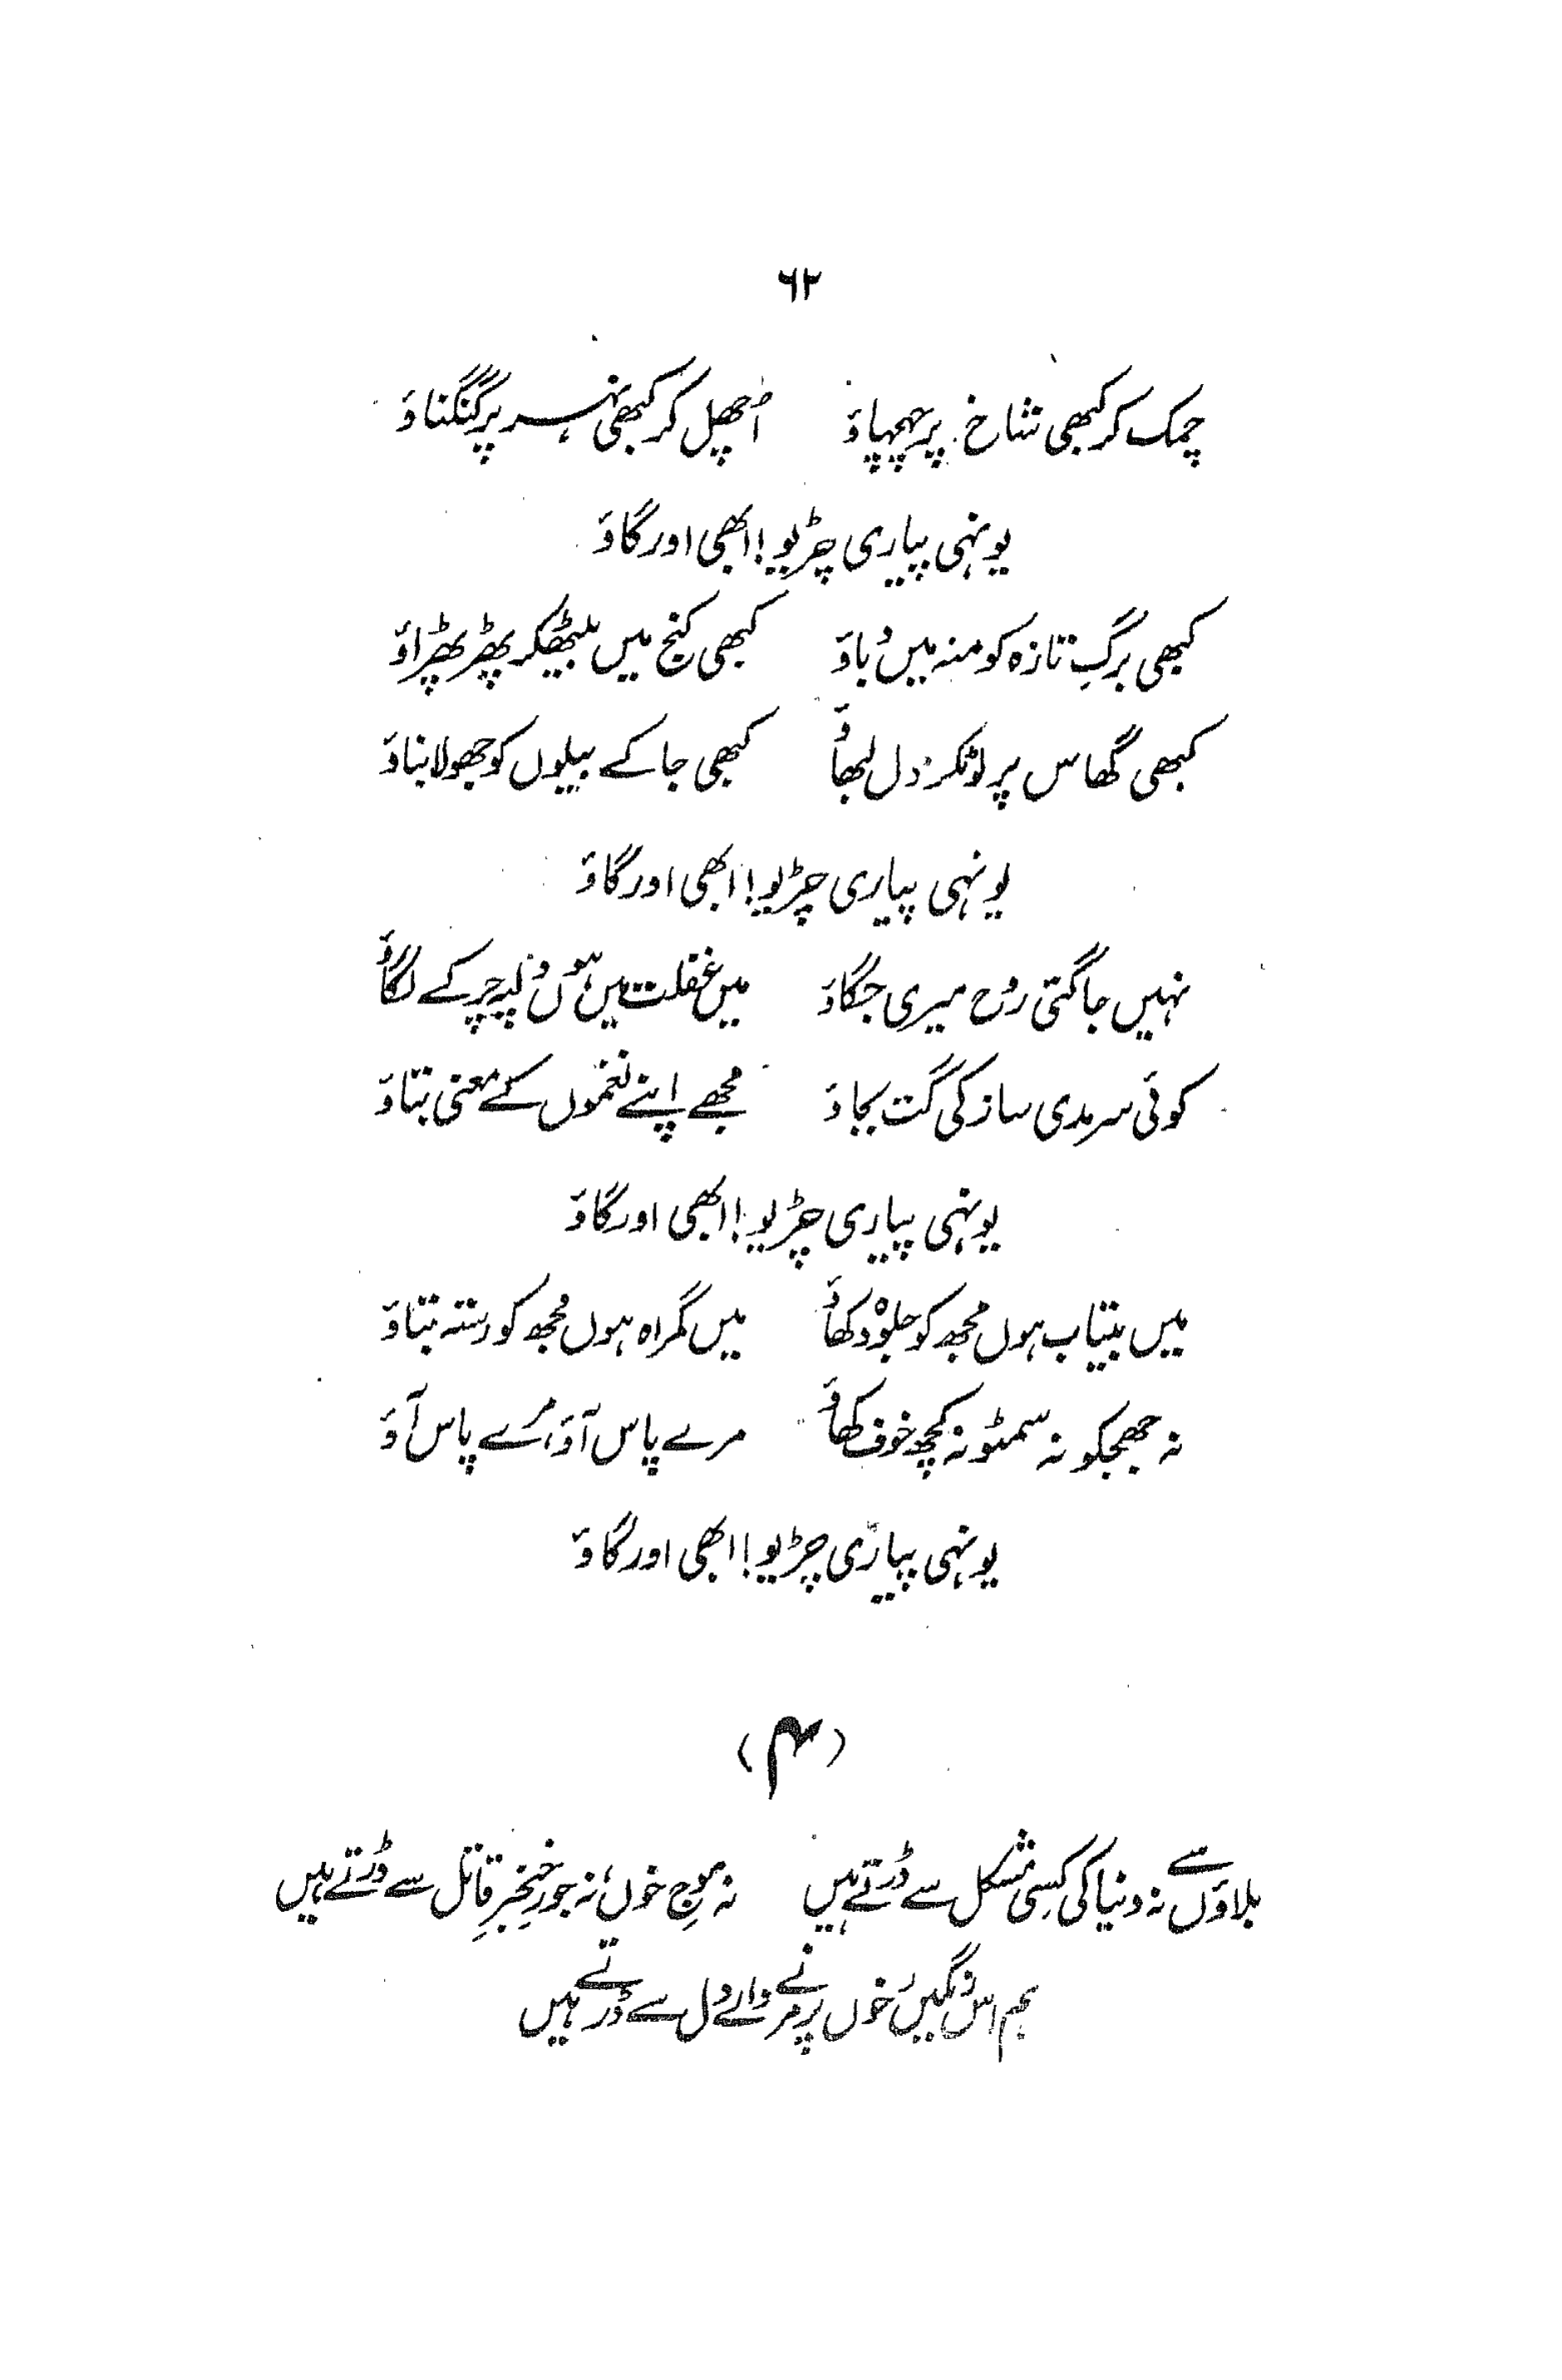 ۶۲
چمک کر کبھی شاخ پر چہچہاؤ اُچھل کر کبھی نہر پر گنگناؤ
یونہی پیاری چڑیو! ابھی اور گاؤ
کبھی برگِ تازہ کو منہ میں دباؤ کبھی کنج میں بیٹھکر پھڑپھڑاؤ
کبھی گھاس پر لوٹکر دل لبھاؤ کبھی جا کے بیلوں کو جھولا بناؤ
یونہی پیاری چڑیو! ابھی اور گاؤ
نہیں جاگتی روح میری جگاؤ میں غفلت میں ہوں دلپہ چرکے لگاؤ
کوئی سرمدی ساز کی گت بجاؤ مجھے اپنے نغموں کے معنی بتاؤ
یونہی پیاری چڑیو! ابھی اور گاؤ
میں بیتاب ہوں مجھ کو جلوہ دکھاؤ میں گمراہ ہوں مجھ کو رستہ بتاؤ
نہ جھجکو نہ سمٹو نہ کچھ خوف کھاؤ مرے پاس آؤ، مرے پاس آؤ
یونہی پیاری چڑیو! ابھی اور گاؤ
(۴)
بلاؤں سے نہ دنیا کی کسی مشکل سے ڈرتے ہیں نہ موجِ خوں، نہ جورِ خنجرِ قاتل سے ڈرتے ہیں
ہم اس رنگیں خوں پر مرنے والے دل سے ڈرتے ہیں